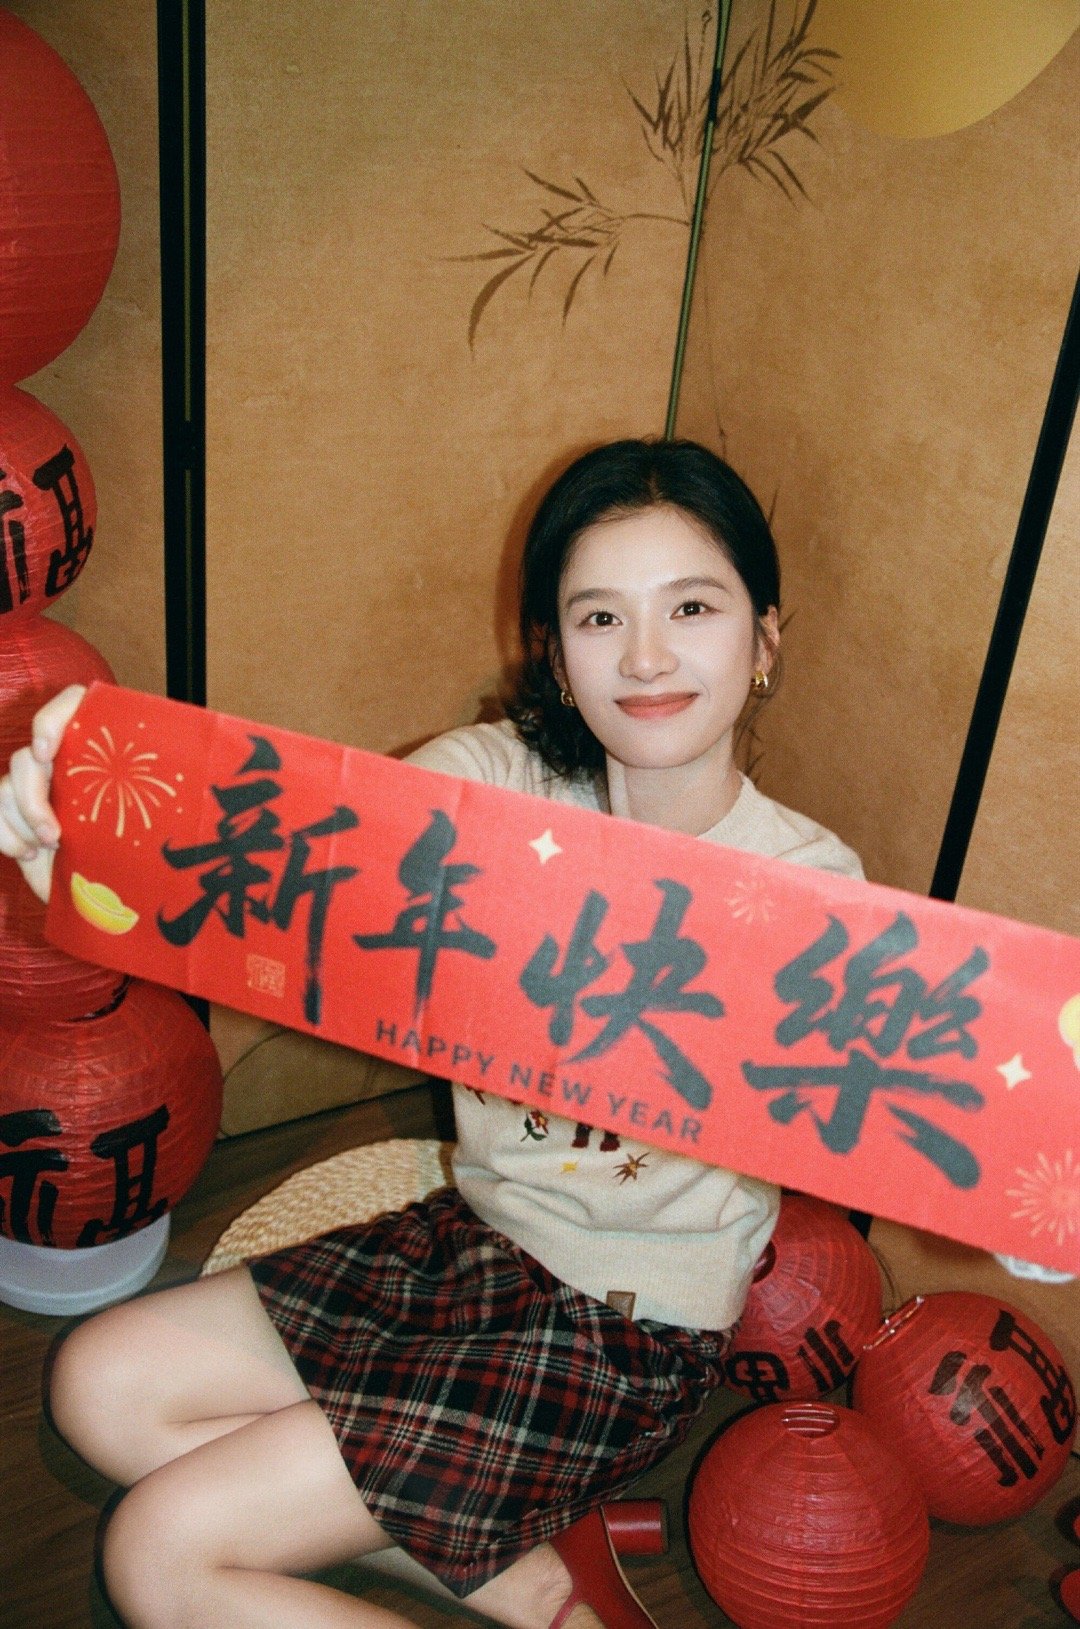 新年快樂
HAPPY NEW YEAR
福
福
福
福